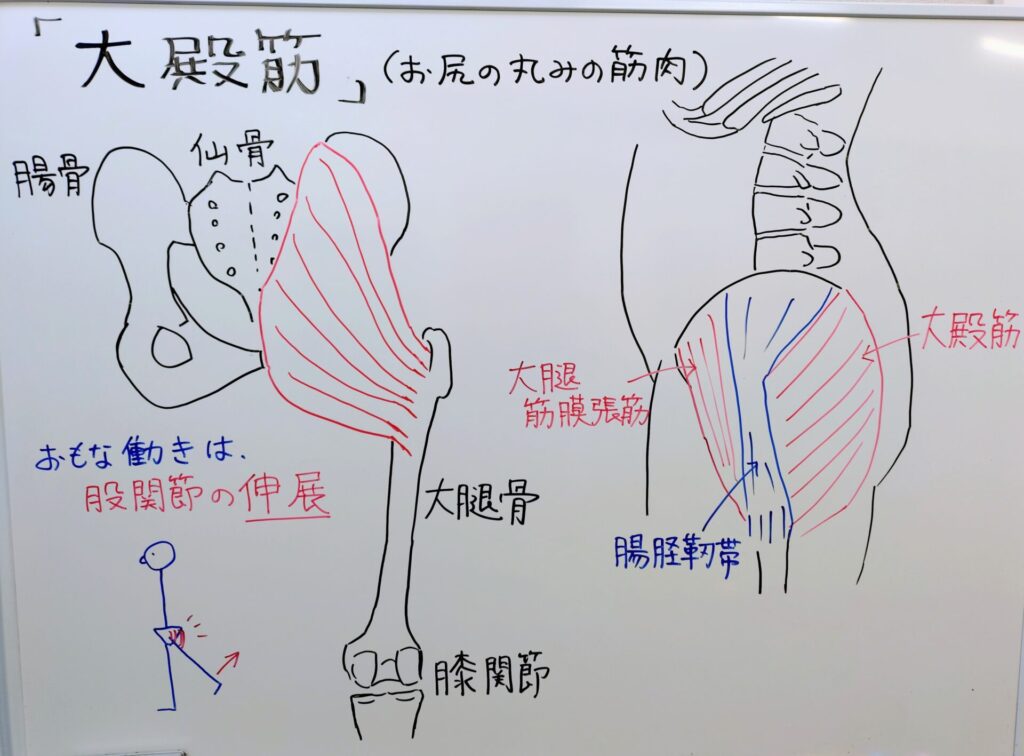 「大殿筋」(お尻の丸みの筋肉)
腸骨
仙骨
大殿筋
大腿
筋膜張筋
おもな働きは、
股関節の伸展
大腿骨
腸脛靭帯
膝関節